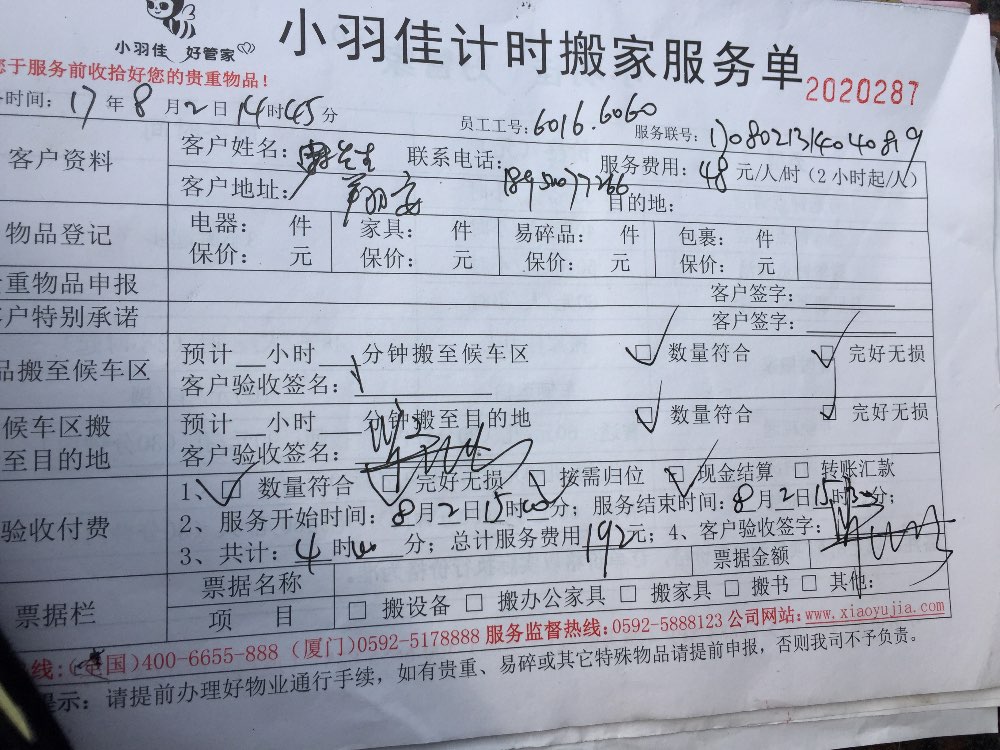 小羽佳 好管家
小羽佳计时搬家服务单
2020287
您于服务前收拾好您的贵重物品!
务时间: 17年8月2日14时45分 员工工号: 6016.6060 服务联号:
客户资料
客户姓名: 先生 联系电话: 服务费用: 48元/人/时 (2小时起/人)
客户地址: 翔安 目的地:
物品登记
电器: 件 家具: 件 易碎品: 件 包裹: 件
保价: 元 保价: 元 保价: 元 保价: 元
重物品申报 客户签字:
户特别承诺 客户签字:
品搬至候车区
预计__小时____分钟搬至候车区 □ 数量符合 □ 完好无损
客户验收签名:
候车区搬
至目的地
预计__小时____分钟搬至目的地 □ 数量符合 □ 完好无损
客户验收签名:
验收付费
1、□ 数量符合 □ 完好无损 □ 按需归位 □ 现金结算 □ 转账汇款
2、服务开始时间: 8月2日15时00分; 服务结束时间: 8月2日15时30分;
3、共计: 4时 分; 总计服务费用192元; 4、客户验收签字:
票据栏
票据名称 票据金额
项 目 □ 搬设备 □ 搬办公家具 □ 搬家具 □ 搬书 □ 其他:
线: (全国)400-6655-888 (厦门)0592-5178888 服务监督热线:0592-5888123 公司网站:www.xiaoyujia.com
提示: 请提前办理好物业通行手续,如有贵重、易碎或其它特殊物品请提前申报,否则我司不予负责。